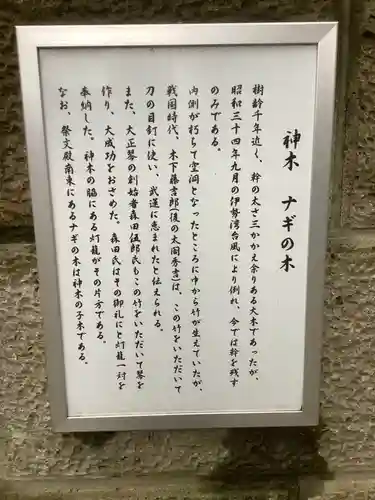 神木 ナギの木
樹齢千年近く、幹の太さ三かかえ余りある大木であったが、
昭和三十四年九月の伊勢湾台風により倒れ、今では幹を残す
のみである。
内側が朽ちて空洞となったところに中から竹が生えていたが、
戦国時代、木下藤吉郎(後の太閤秀吉)は、この竹をいただいて
刀の目釘に使い、武運に恵まれたと伝えられる。
また、大正琴の創始者森田伍郎氏もこの竹をいただいて琴を
作り、大成功をおさめた。森田氏はその御礼にと灯籠一対を
奉納した。神木の脇にある灯籠がその片方である。
なお、祭文殿南東にあるナギの木は神木の子木である。